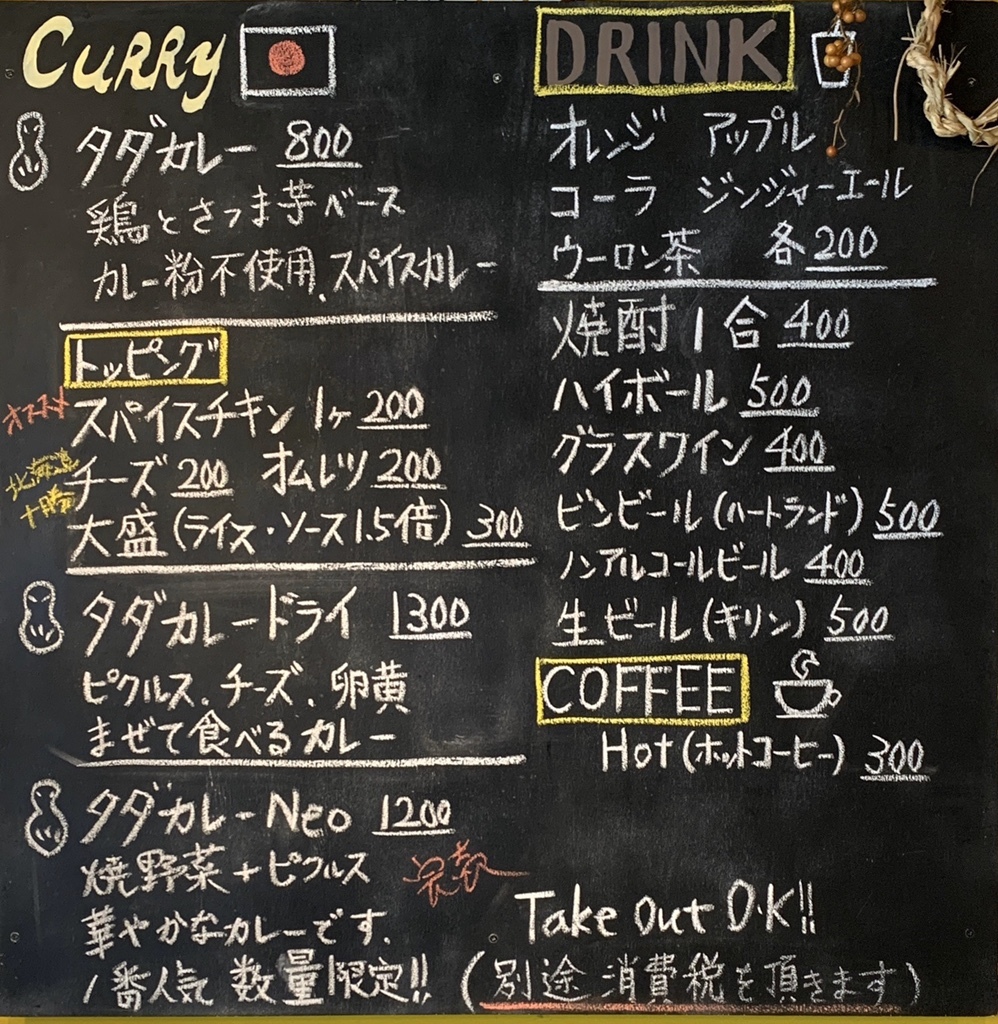 CURRY
タダカレー 800
鶏とさつま芋ベース
カレー粉不使用、スパイスカレー
トッピング
オススメ
スパイスチキン 1ヶ 200
北海道
十勝
チーズ 200 オムレツ 200
大盛(ライス・ソース1.5倍) 300
タダカレードライ 1300
ピクルス、チーズ、卵黄
まぜて食べるカレー
タダカレーNeo 1200
焼野菜+ピクルス
華やかなカレーです、
1番人気 数量限定!!
DRINK
オレンジ アップル
コーラ ジンジャーエール
ウーロン茶 各200
焼酎1合 400
ハイボール 500
グラスワイン 400
ビンビール(ハートランド) 500
ノンアルコールビール 400
生ビール(キリン) 500
COFFEE
Hot(ホットコーヒー) 300
Take Out O.K!!
(別途消費税を頂きます)